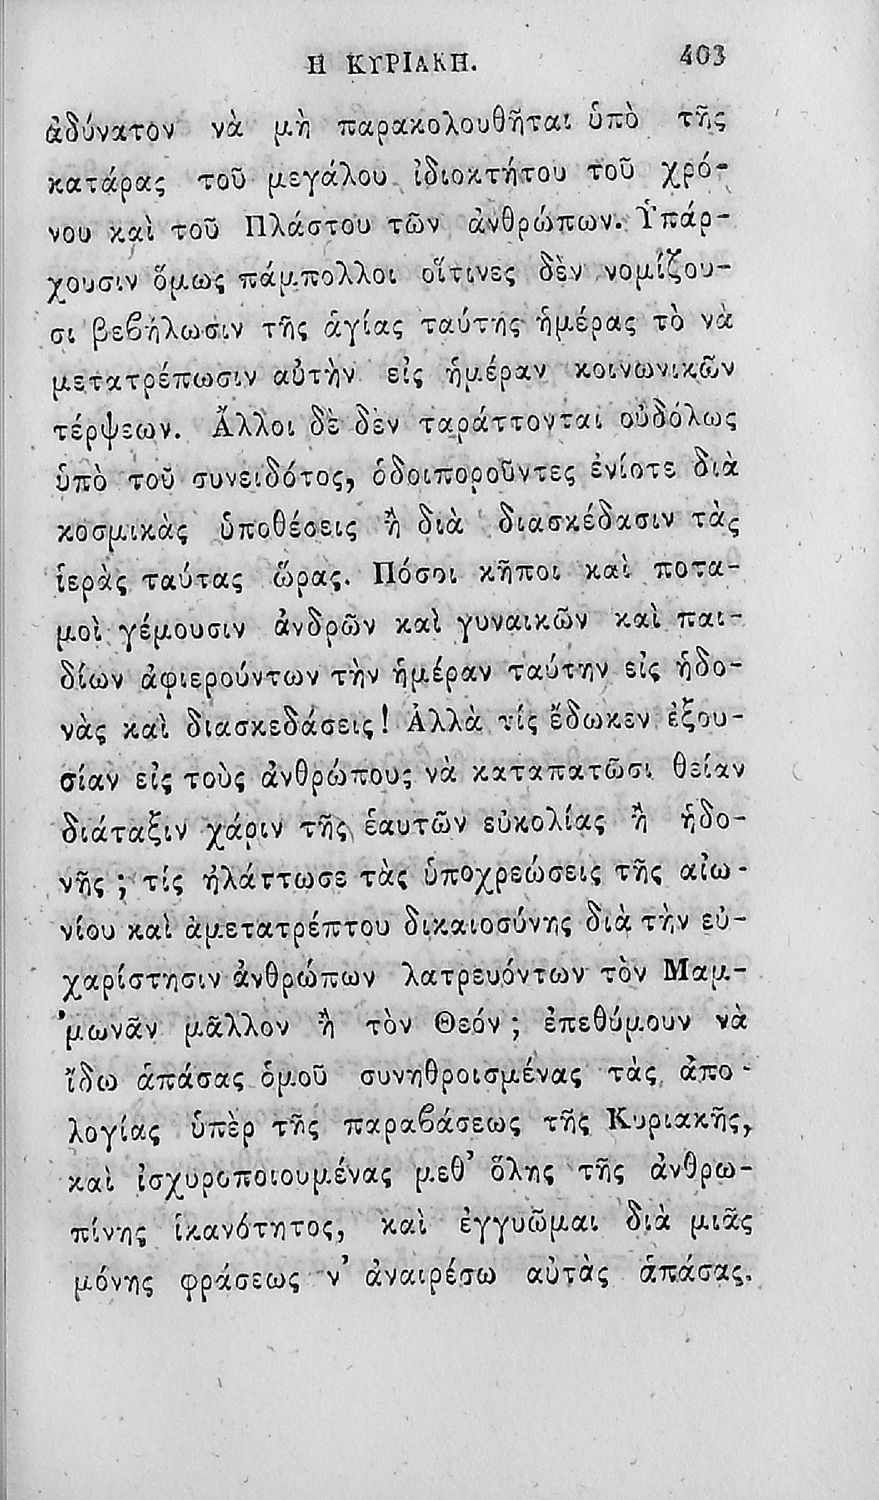 Η ΚΥΡΙΑΚΗ. 403
ἀδύνατον νὰ μὴ παρακολουθῆται ὑπὸ τῆς
κατάρας τοῦ μεγάλου ἰδιοκτήτου τοῦ χρό-
νου καὶ τοῦ Πλάστου τῶν ἀνθρώπων. Ὑπάρ-
χουσιν ὅμως πάμπολλοι οἵτινες δὲν νομίζου-
σι βεβήλωσιν τῆς ἁγίας ταύτης ἡμέρας τὸ νὰ
μετατρέπωσιν αὐτὴν εἰς ἡμέραν κοινωνικῶν
τέρψεων. Ἄλλοι δὲ δὲν ταράττονται οὐδόλως
ὑπὸ τοῦ συνειδότος, ὁδοιποροῦντες ἐνίοτε διὰ
κοσμικὰς ὑποθέσεις ἢ διὰ διασκέδασιν τὰς
ἱερὰς ταύτας ὥρας. Πόσοι κῆποι καὶ ποτα-
μοὶ γέμουσιν ἀνδρῶν καὶ γυναικῶν καὶ παι-
δίων ἀφιερούντων τὴν ἡμέραν ταύτην εἰς ἡδο-
νὰς καὶ διασκεδάσεις! Ἀλλὰ τίς ἔδωκεν ἐξου-
σίαν εἰς τοὺς ἀνθρώπους νὰ καταπατῶσι θείαν
διάταξιν χάριν τῆς ἑαυτῶν εὐκολίας ἢ ἡδο-
νῆς ; τίς ἠλάττωσε τὰς ὑποχρεώσεις τῆς αἰω-
νίου καὶ ἀμετατρέπτου δικαιοσύνης διὰ τὴν εὐ-
χαρίστησιν ἀνθρώπων λατρευόντων τὸν Μαμ-
μωνᾶν μᾶλλον ἢ τὸν Θεόν ; ἐπεθύμουν νὰ
ἴδω ἁπάσας ὁμοῦ συνηθροισμένας τὰς ἀπο-
λογίας ὑπὲρ τῆς παραβάσεως τῆς Κυριακῆς,
καὶ ἰσχυροποιουμένας μεθ' ὅλης τῆς ἀνθρω-
πίνης ἱκανότητος, καὶ ἐγγυῶμαι διὰ μιᾶς
μόνης φράσεως ν' ἀναιρέσω αὐτὰς ἁπάσας.